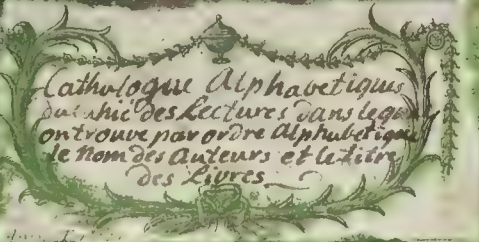 Cathologue Alphabetiques
des Lectures dans lequel
on trouve par ordre Alphabetique
le Nom des Auteurs et le titre
des Livres